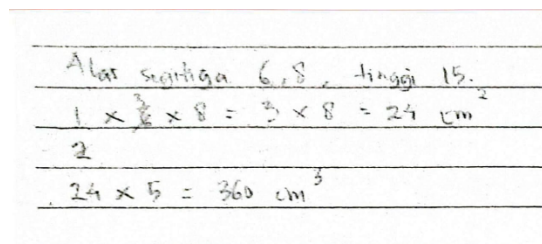 Alas segitiga 6,8, tinggi 15.
1 × 6 3 × 8 = 3 × 8 = 24 cm²
2
24 × 5 = 360 cm³